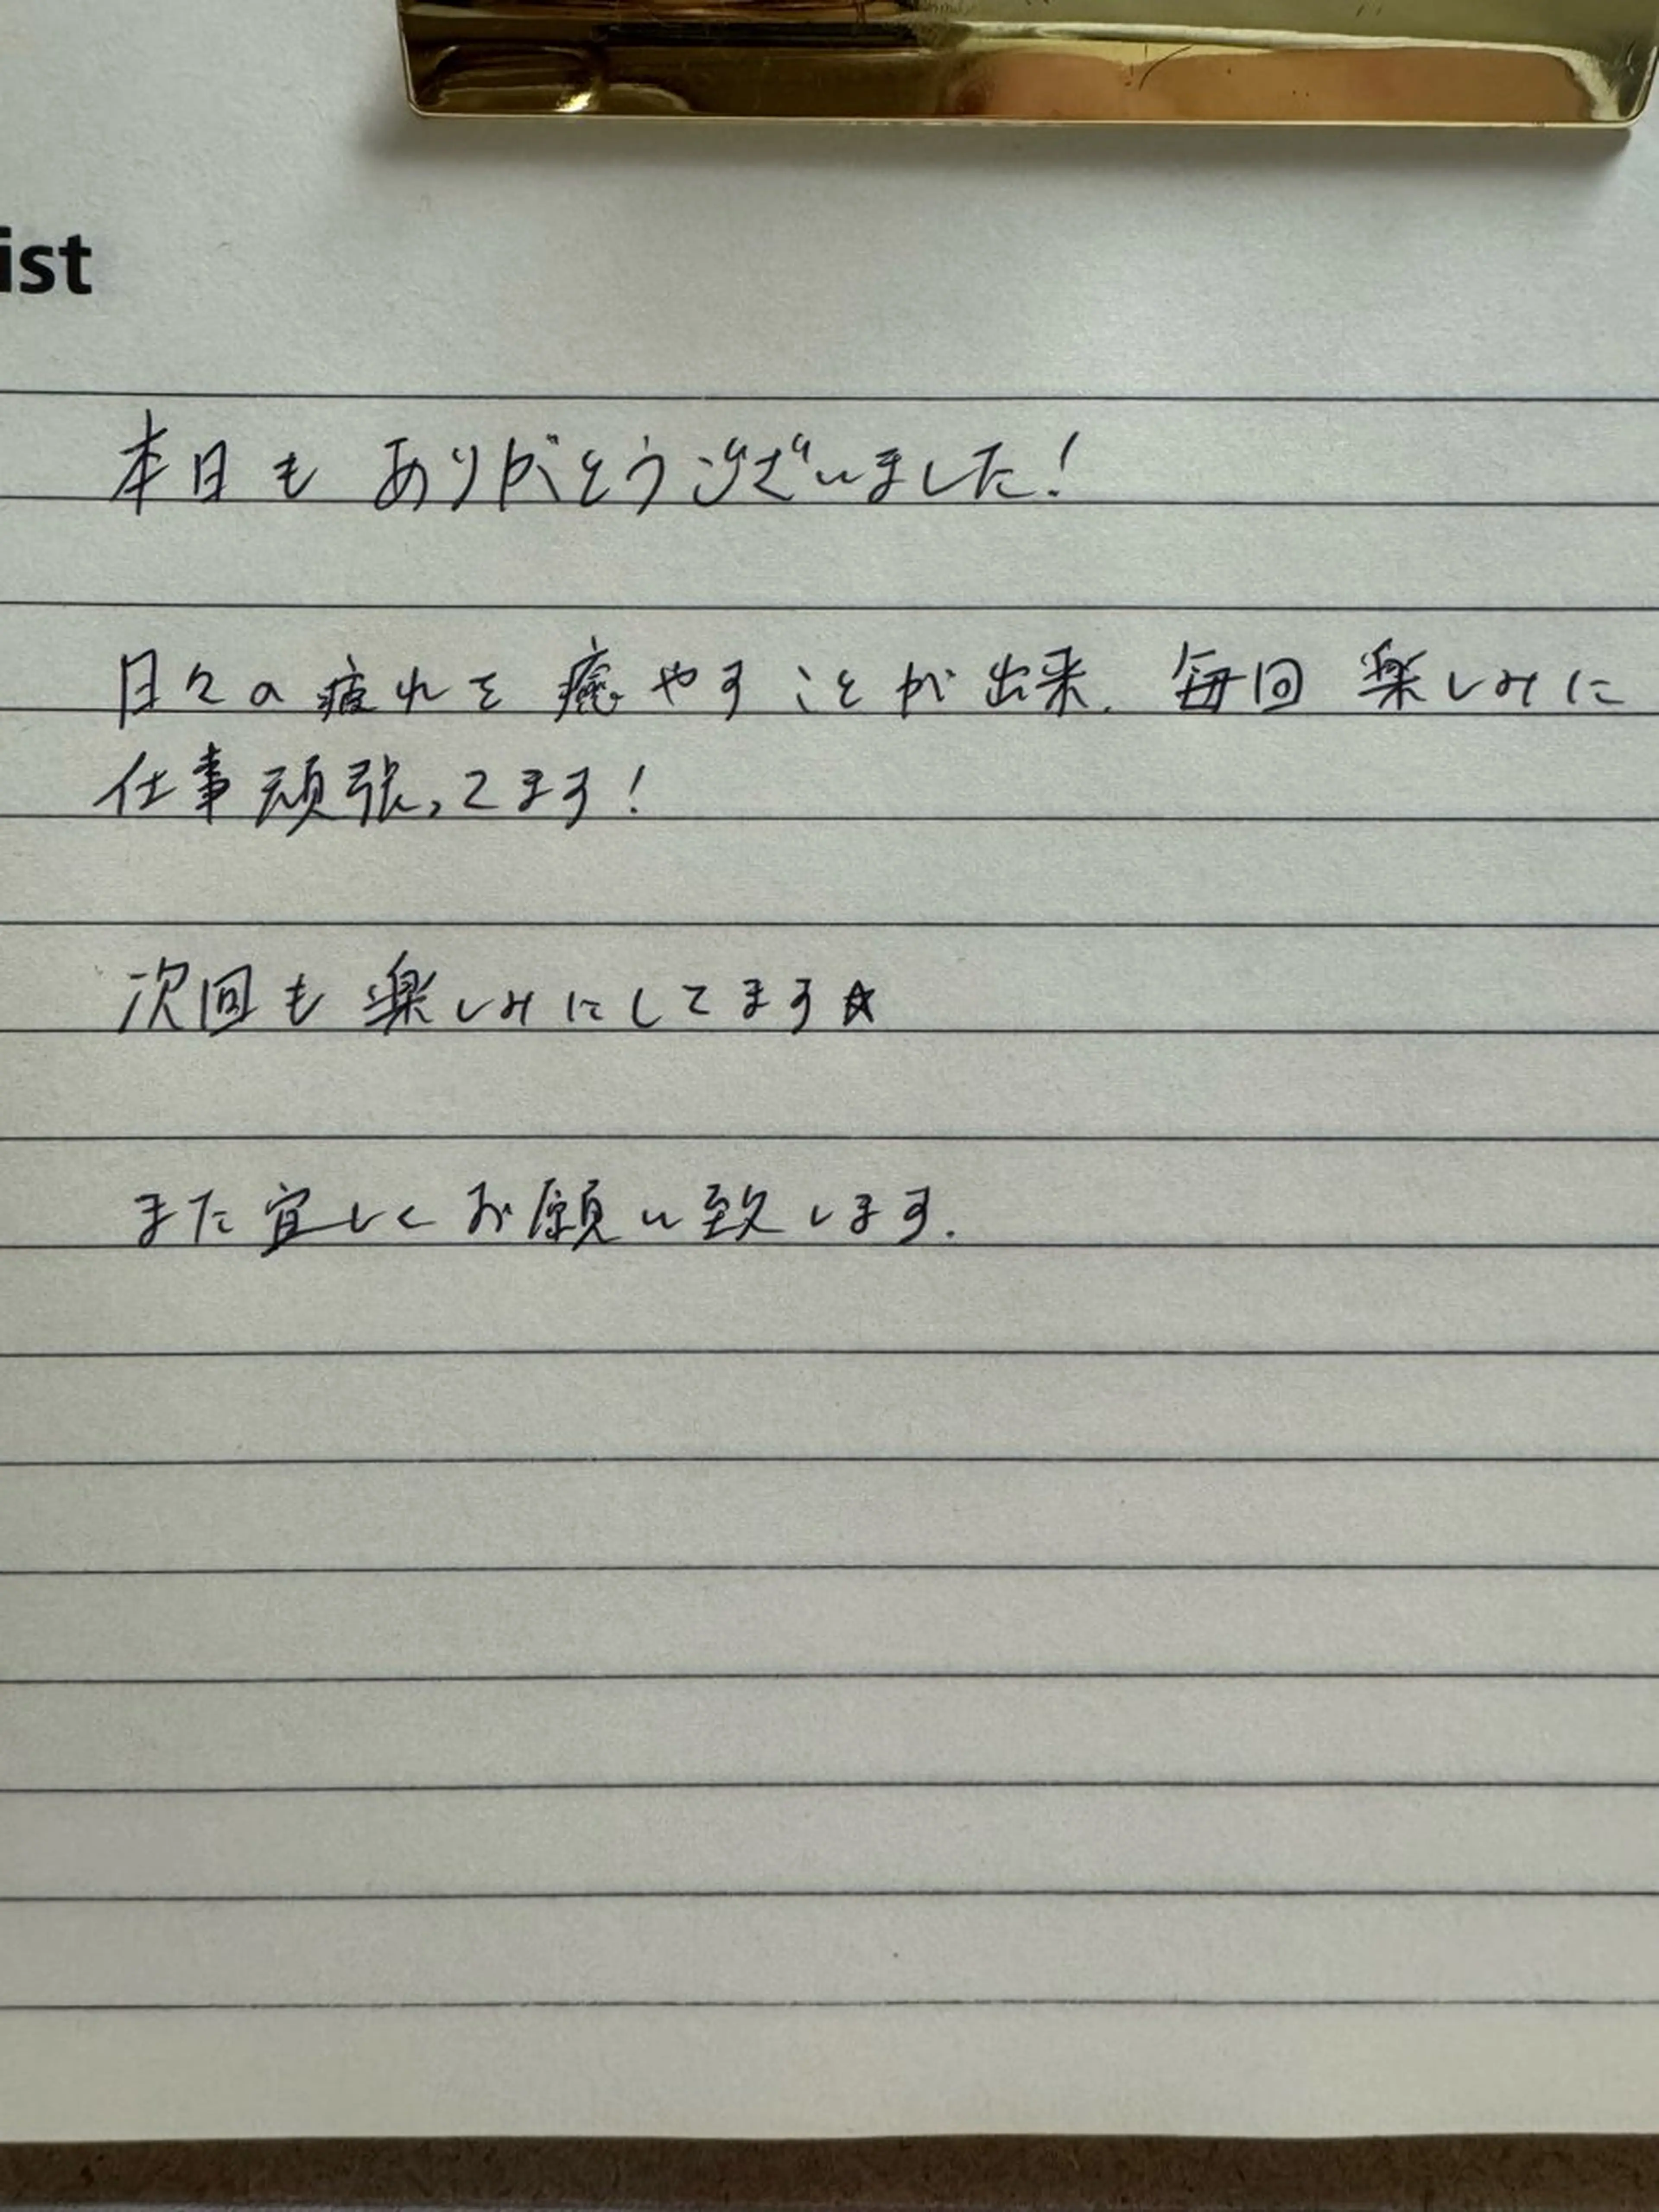 ist
本日も ありがとうございました!
日々の疲れを癒やすことが出来、毎回 楽しみに
仕事頑張ってます!
次回も楽しみにしてます☆
また宜しくお願い致します.